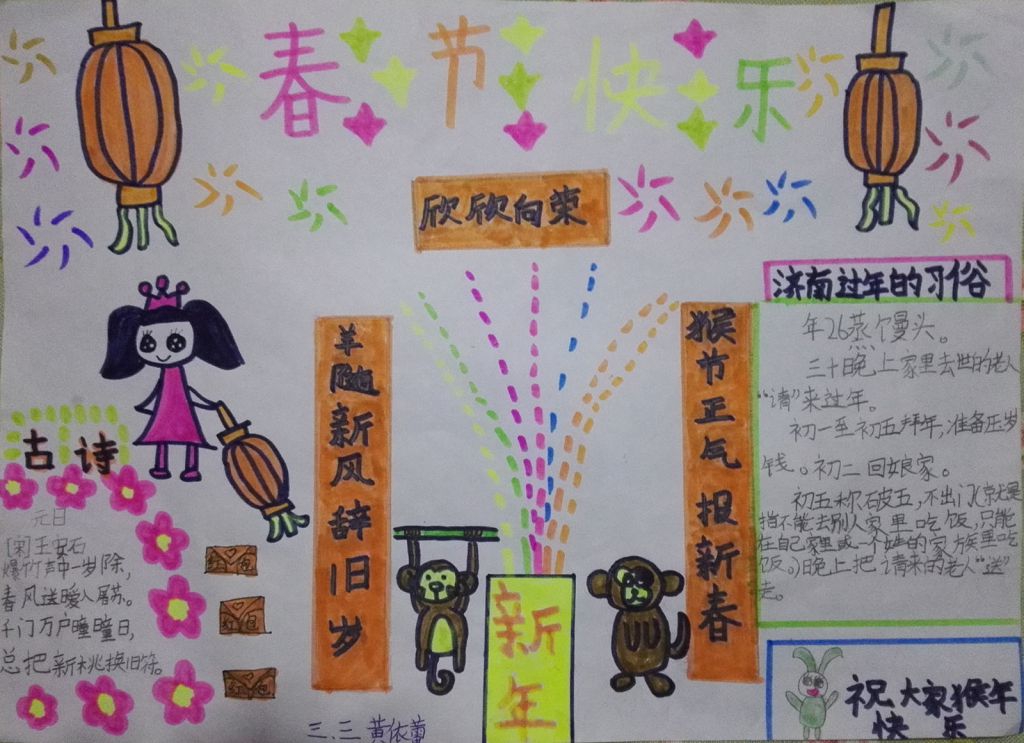 春节快乐
欣欣向荣
羊随新风辞旧岁
猴节正气报新春
新年
古诗
元日
[宋]王安石
爆竹声中一岁除,
春风送暖入屠苏。
千门万户曈曈日,
总把新桃换旧符。
红包
红包
红包
三、三 黄依蕾
济南过年的习俗
年26蒸个曼头。
三十晚上家里去世的老人
“请”来过年。
初一至初五拜年,准备压岁
钱。初二回娘家。
初五称破五,不出门(就是
指不能去别人家里吃饭,只能
在自己家里或一个姓的家族里吃
饭。)晚上把请来的老人“送”
走。
祝大家猴年
快乐